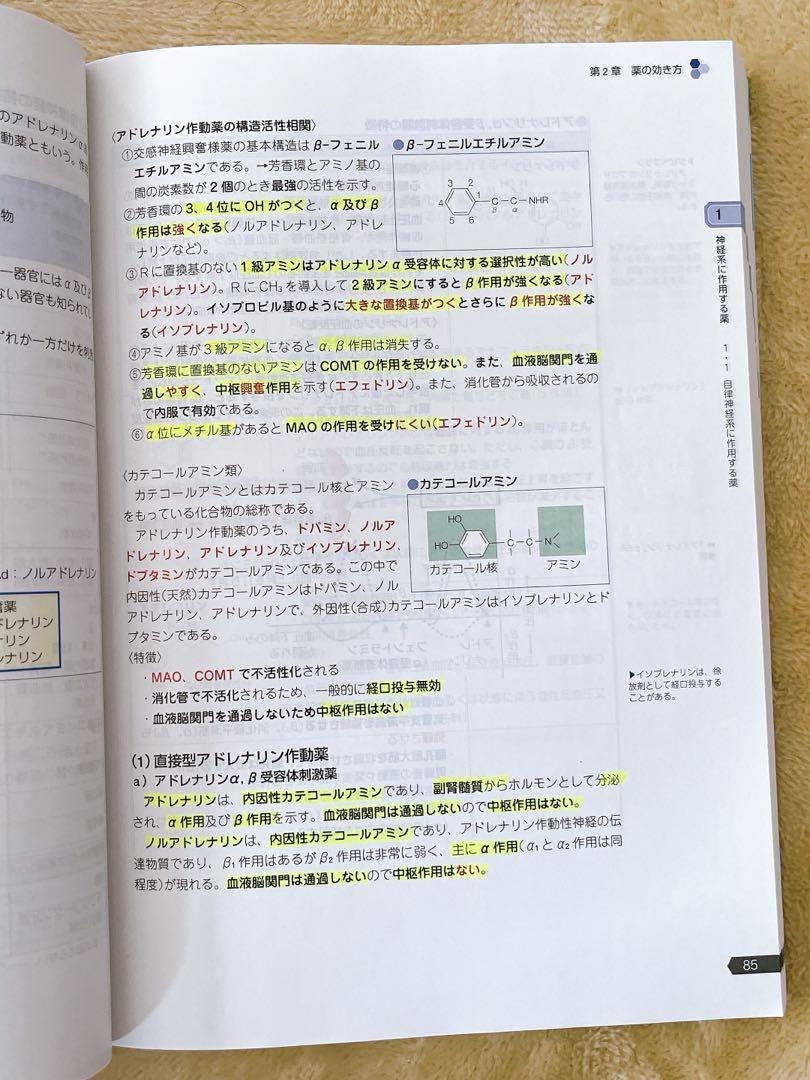 第2章 薬の効き方
のアドレナリンα
動薬ともいう。作
物
一器官にはα及びβ
ない器官も知られてし
ずれか一方だけを刺激
Ad：ノルアドレナリン
〈アドレナリン作動薬の構造活性相関〉
①交感神経興奮様薬の基本構造はβ-フェニル
エチルアミンである。→芳香環とアミノ基の
間の炭素数が2個のとき最強の活性を示す。
②芳香環の3、4位にOHがつくと、α及びβ
作用は強くなる(ノルアドレナリン、アドレ
ナリンなど)。
●β-フェニルエチルアミン
3 2
4 1
5 6
C-C-NHR
β α
③Rに置換基のない1級アミンはアドレナリンα受容体に対する選択性が高い(ノル
アドレナリン)。RにCH₃を導入して2級アミンにするとβ作用が強くなる(アド
レナリン)。イソプロピル基のように大きな置換基がつくとさらにβ作用が強くな
る(イソプレナリン)。
④アミノ基が3級アミンになるとα, β作用は消失する。
⑤芳香環に置換基のないアミンはCOMTの作用を受けない。また、血液脳関門を通
過しやすく、中枢興奮作用を示す(エフェドリン)。また、消化管から吸収されるの
で内服で有効である。
⑥α位にメチル基があるとMAOの作用を受けにくい(エフェドリン)。
〈カテコールアミン類〉
カテコールアミンとはカテコール核とアミン
をもっている化合物の総称である。
アドレナリン作動薬のうち、ドパミン、ノルア
ドレナリン、アドレナリン及びイソプレナリン、
ドブタミンがカテコールアミンである。この中で
内因性(天然)カテコールアミンはドパミン、ノル
アドレナリン、アドレナリンで、外因性(合成)カテコールアミンはイソプレナリンとド
ブタミンである。
●カテコールアミン
HO
HO
C-C-N
カテコール核 アミン
〈特徴〉
・MAO、COMTで不活性化される
・消化管で不活化されるため、一般的に経口投与無効
・血液脳関門を通過しないため中枢作用はない
▶イソプレナリンは、徐
放剤として経口投与する
ことがある。
(1)直接型アドレナリン作動薬
a）アドレナリンα, β受容体刺激薬
アドレナリンは、内因性カテコールアミンであり、副腎髄質からホルモンとして分泌
され、α作用及びβ作用を示す。血液脳関門は通過しないので中枢作用はない。
ノルアドレナリンは、内因性カテコールアミンであり、アドレナリン作動性神経の伝
達物質であり、β₁作用はあるがβ₂作用は非常に弱く、主にα作用(α₁とα₂作用は同
程度)が現れる。血液脳関門は通過しないので中枢作用はない。
1
神経系に作用する薬
1・1 自律神経系に作用する薬
85